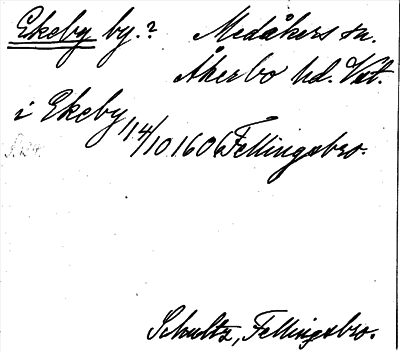 Ekeby by.? Medåkers sn.
Åkerbo hd. Vstl.
i Ekeby 14/10 1606 Fellingsbro.
Schultz, Fellingsbro.